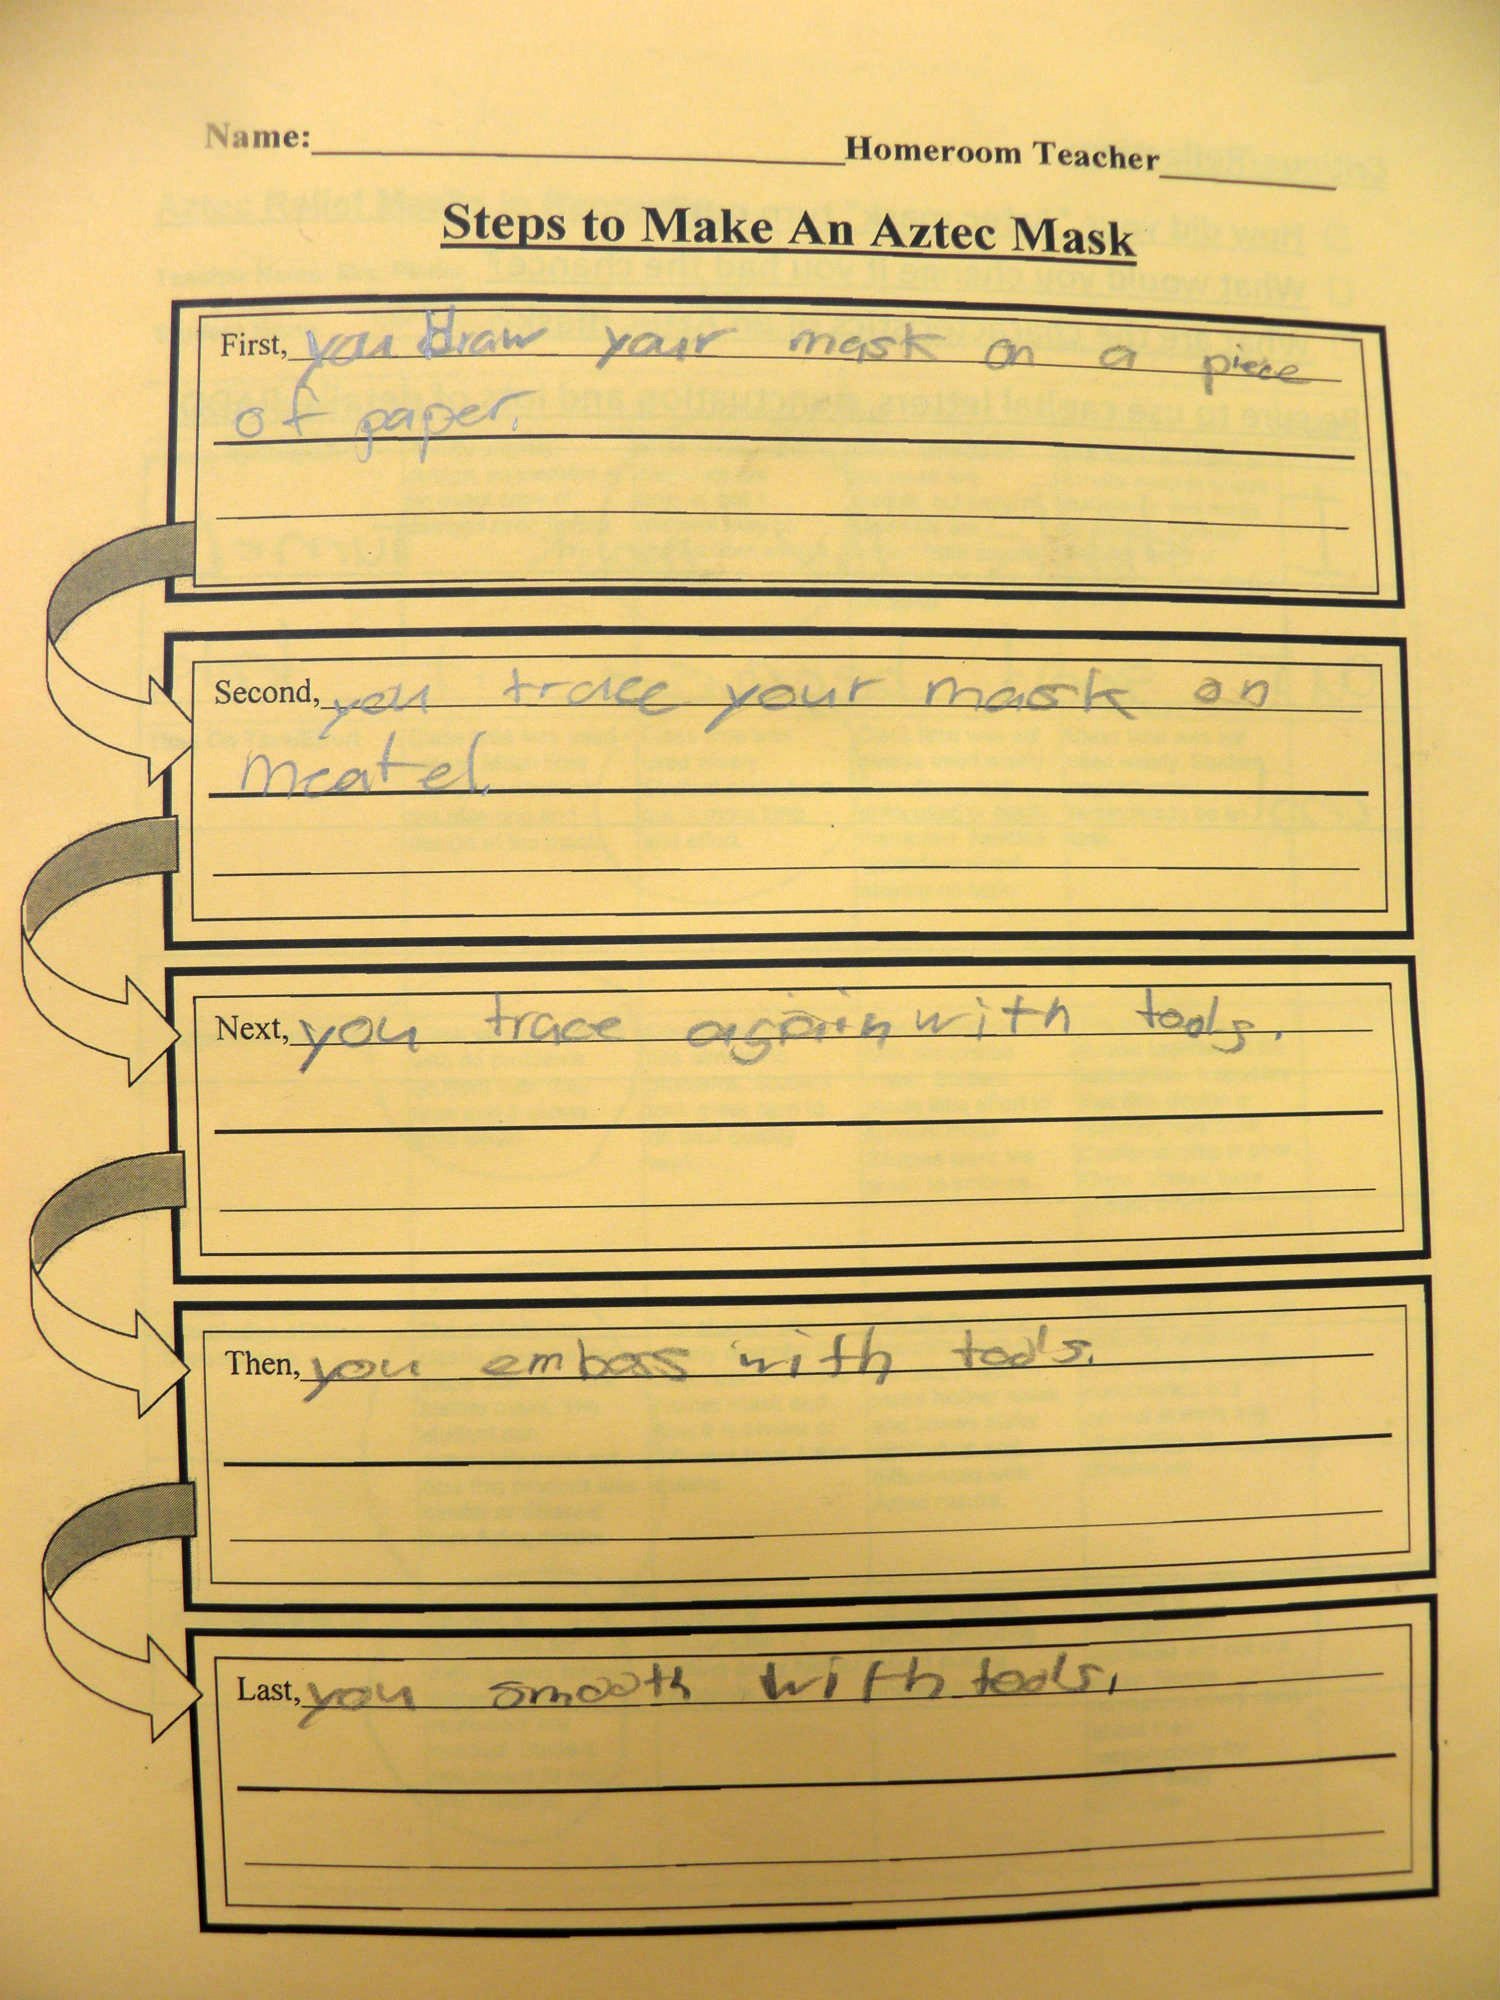 Name:____________________Homeroom Teacher__________
Steps to Make An Aztec Mask
First, you draw your mask on a piece
of paper.
Second, you trace your mask on
meatel.
Next, you trace again with tools.
Then, you emboss with tools.
Last, you smooth with tools.